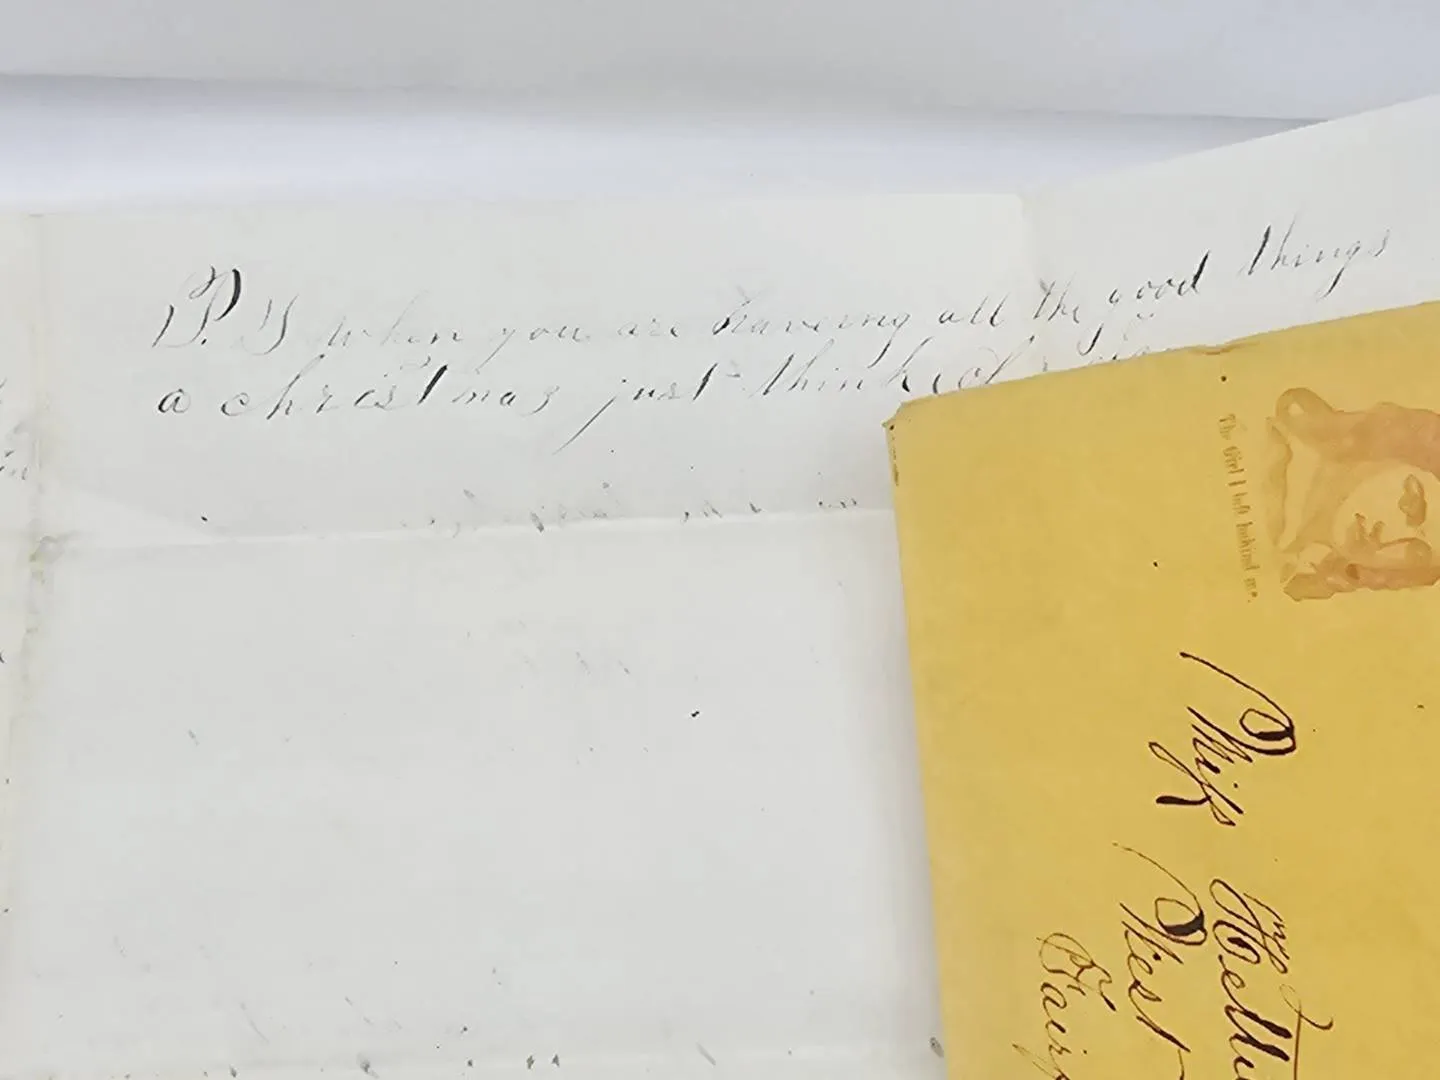 P. S when you are haveing all the good things
a christmas just think of
The Girl I left behind me.
Miss
West